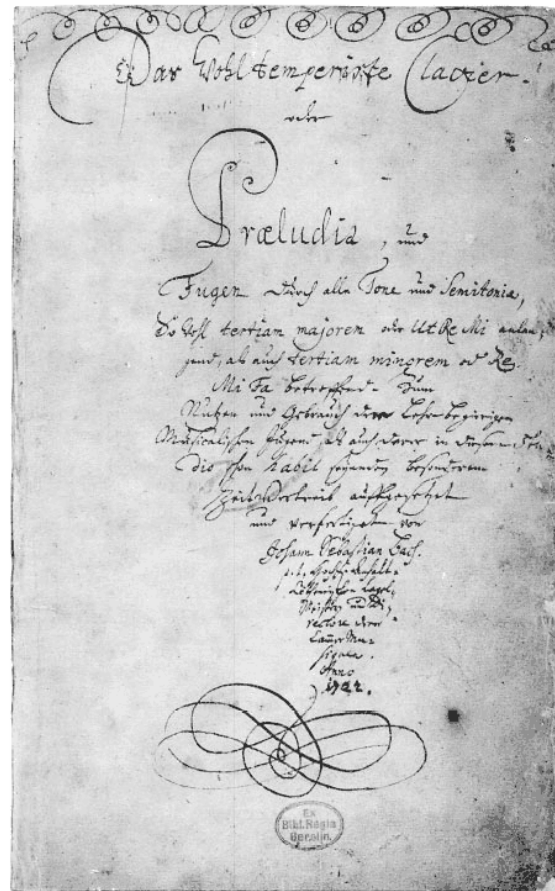 Das Wohltemperirte Clavier.
oder
Præludia, und
Fugen durch alle Tone und Semitonia,
So wohl tertiam majorem oder Ut Re Mi anlan,
gend, als auch tertiam minorem oder Re
Mi Fa betreffend. Zum
Nutzen und Gebrauch der Lehr-begierigen
Musicalischen Jugend, als auch derer in diesem Stu-
dio schon habil seyenden besonderem
Zeit Vertreib auffgesetzet
und verfertiget von
Johann Sebastian Bach.
p. t. Hochf. Anhalt-
Cöthenischen Capel-
Meistern und Di-
rectore derer
Cam̅er Mu-
siquen.
Anno
1722.
Ex
Bibl. Regia
Berolin.